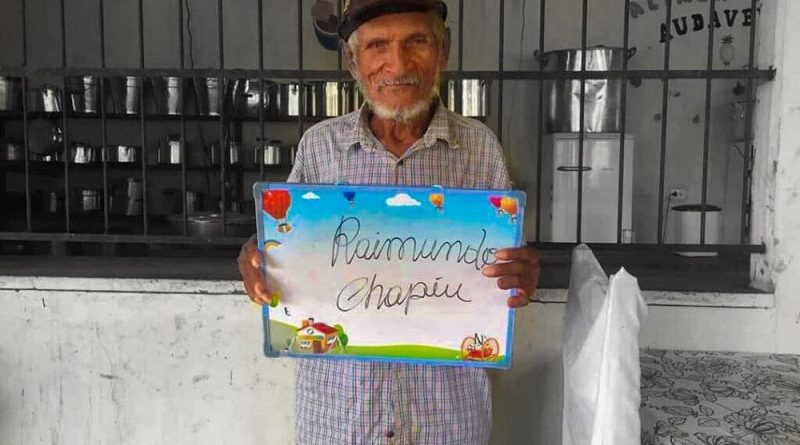 AUDAVE
Raimundo
Chapéu